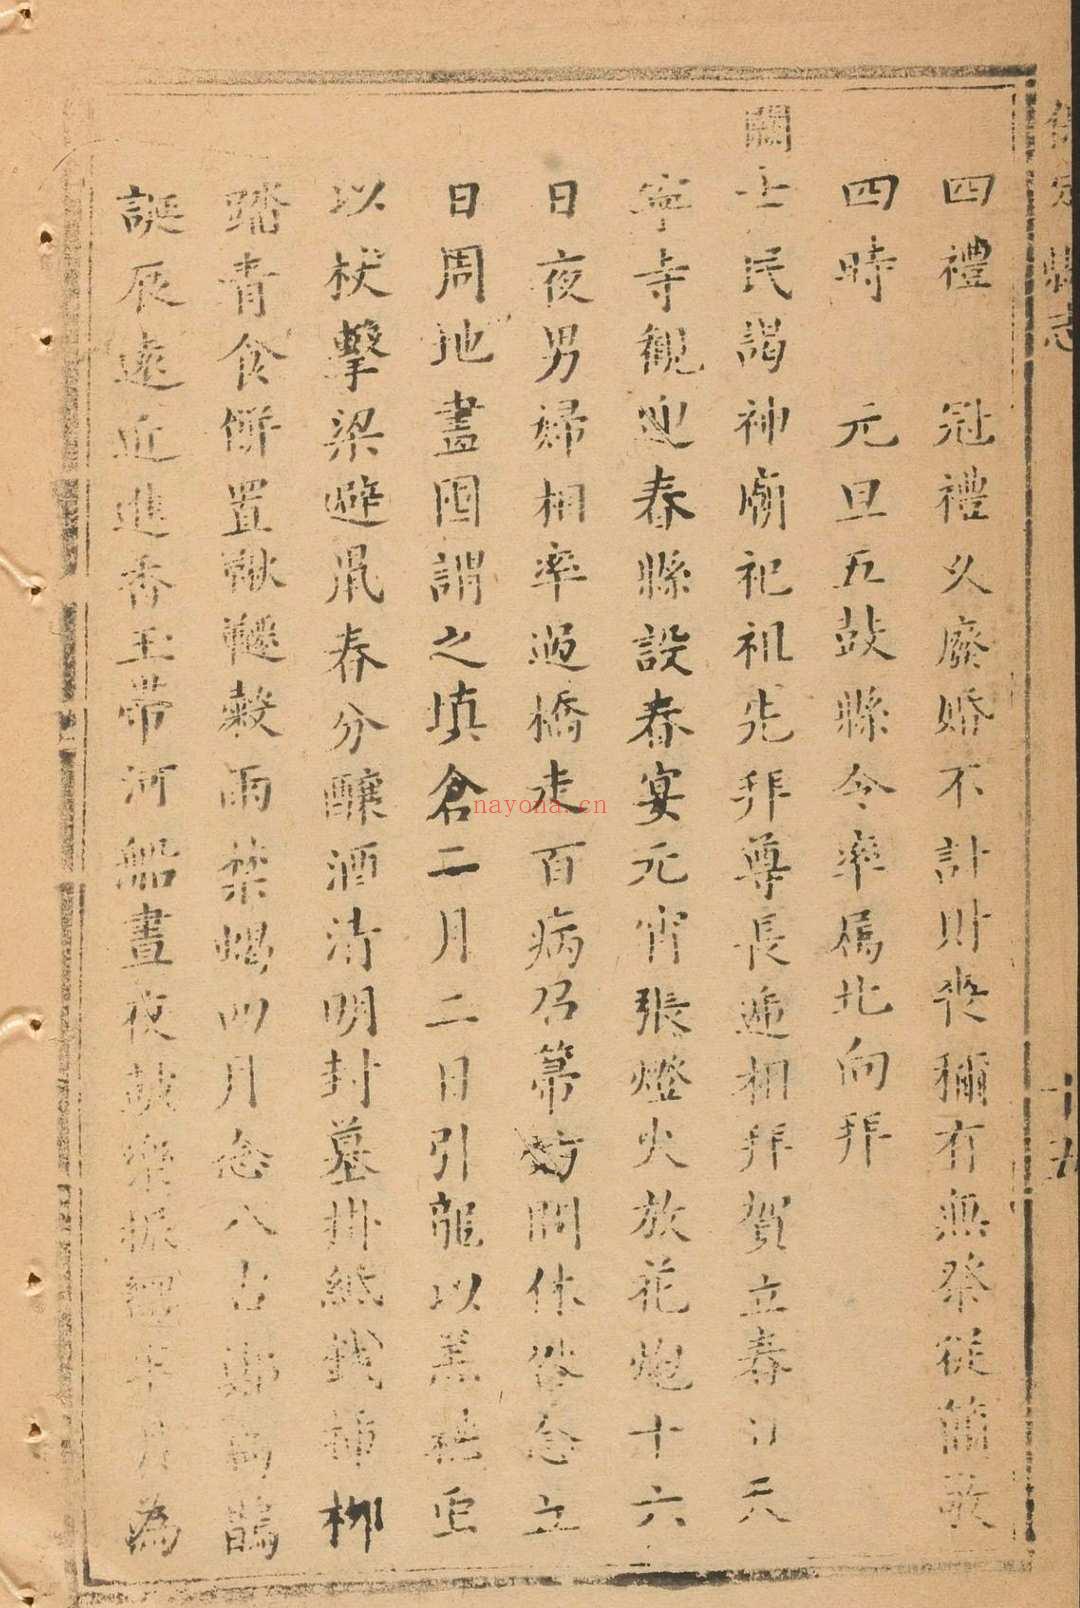 縣志
十五
四禮 冠禮久廢婚不計財喪稱有無祭從簡
四時 元旦五鼓縣令率屬北向拜
闕士民謁神廟祀祖先拜尊長遞相拜賀立春日天
寧寺觀迎春縣設春宴元宵張燈火放花炮十六
日夜男婦相率過橋走百病召箒姑問休咎念五
日周地畫囤謂之填倉二月二日引龍以
以杖擊梁避鼠春分釀酒清明封墓掛紙錢插柳
踏青食餅置鞦韆穀雨禁蝎四月念八古鄚扁鵲
誕辰遠近進香玉帶河船晝夜鼓樂振 半月為
nayona.cn